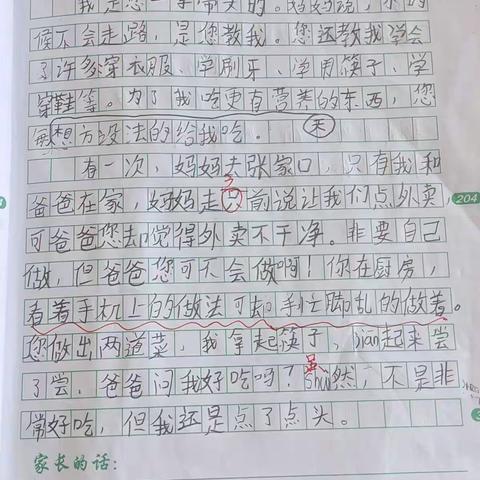 我是您一手带大的。妈妈说，你的
候不会走路，是您教我。您还教我学会
了许多穿衣服、学刷牙、学用筷子、学
穿鞋等。为了我吃更有营养的东西，您
每想方设法的给我吃。
天
有一次，妈妈去张家口，只有我和
爸爸在家，妈妈走之前说让我们点外卖，
204
可爸爸您却觉得外卖不干净。非要自己
做，但爸爸您可不会做啊！你在厨房，
看着手机上的的做法可却手忙脚乱的做着。
您做出两道菜，我拿起筷子，jian起来尝
了尝，爸爸问我好吃吗？虽Shuī然，不是非
常好吃，但我还是点了点头。
家长的话：